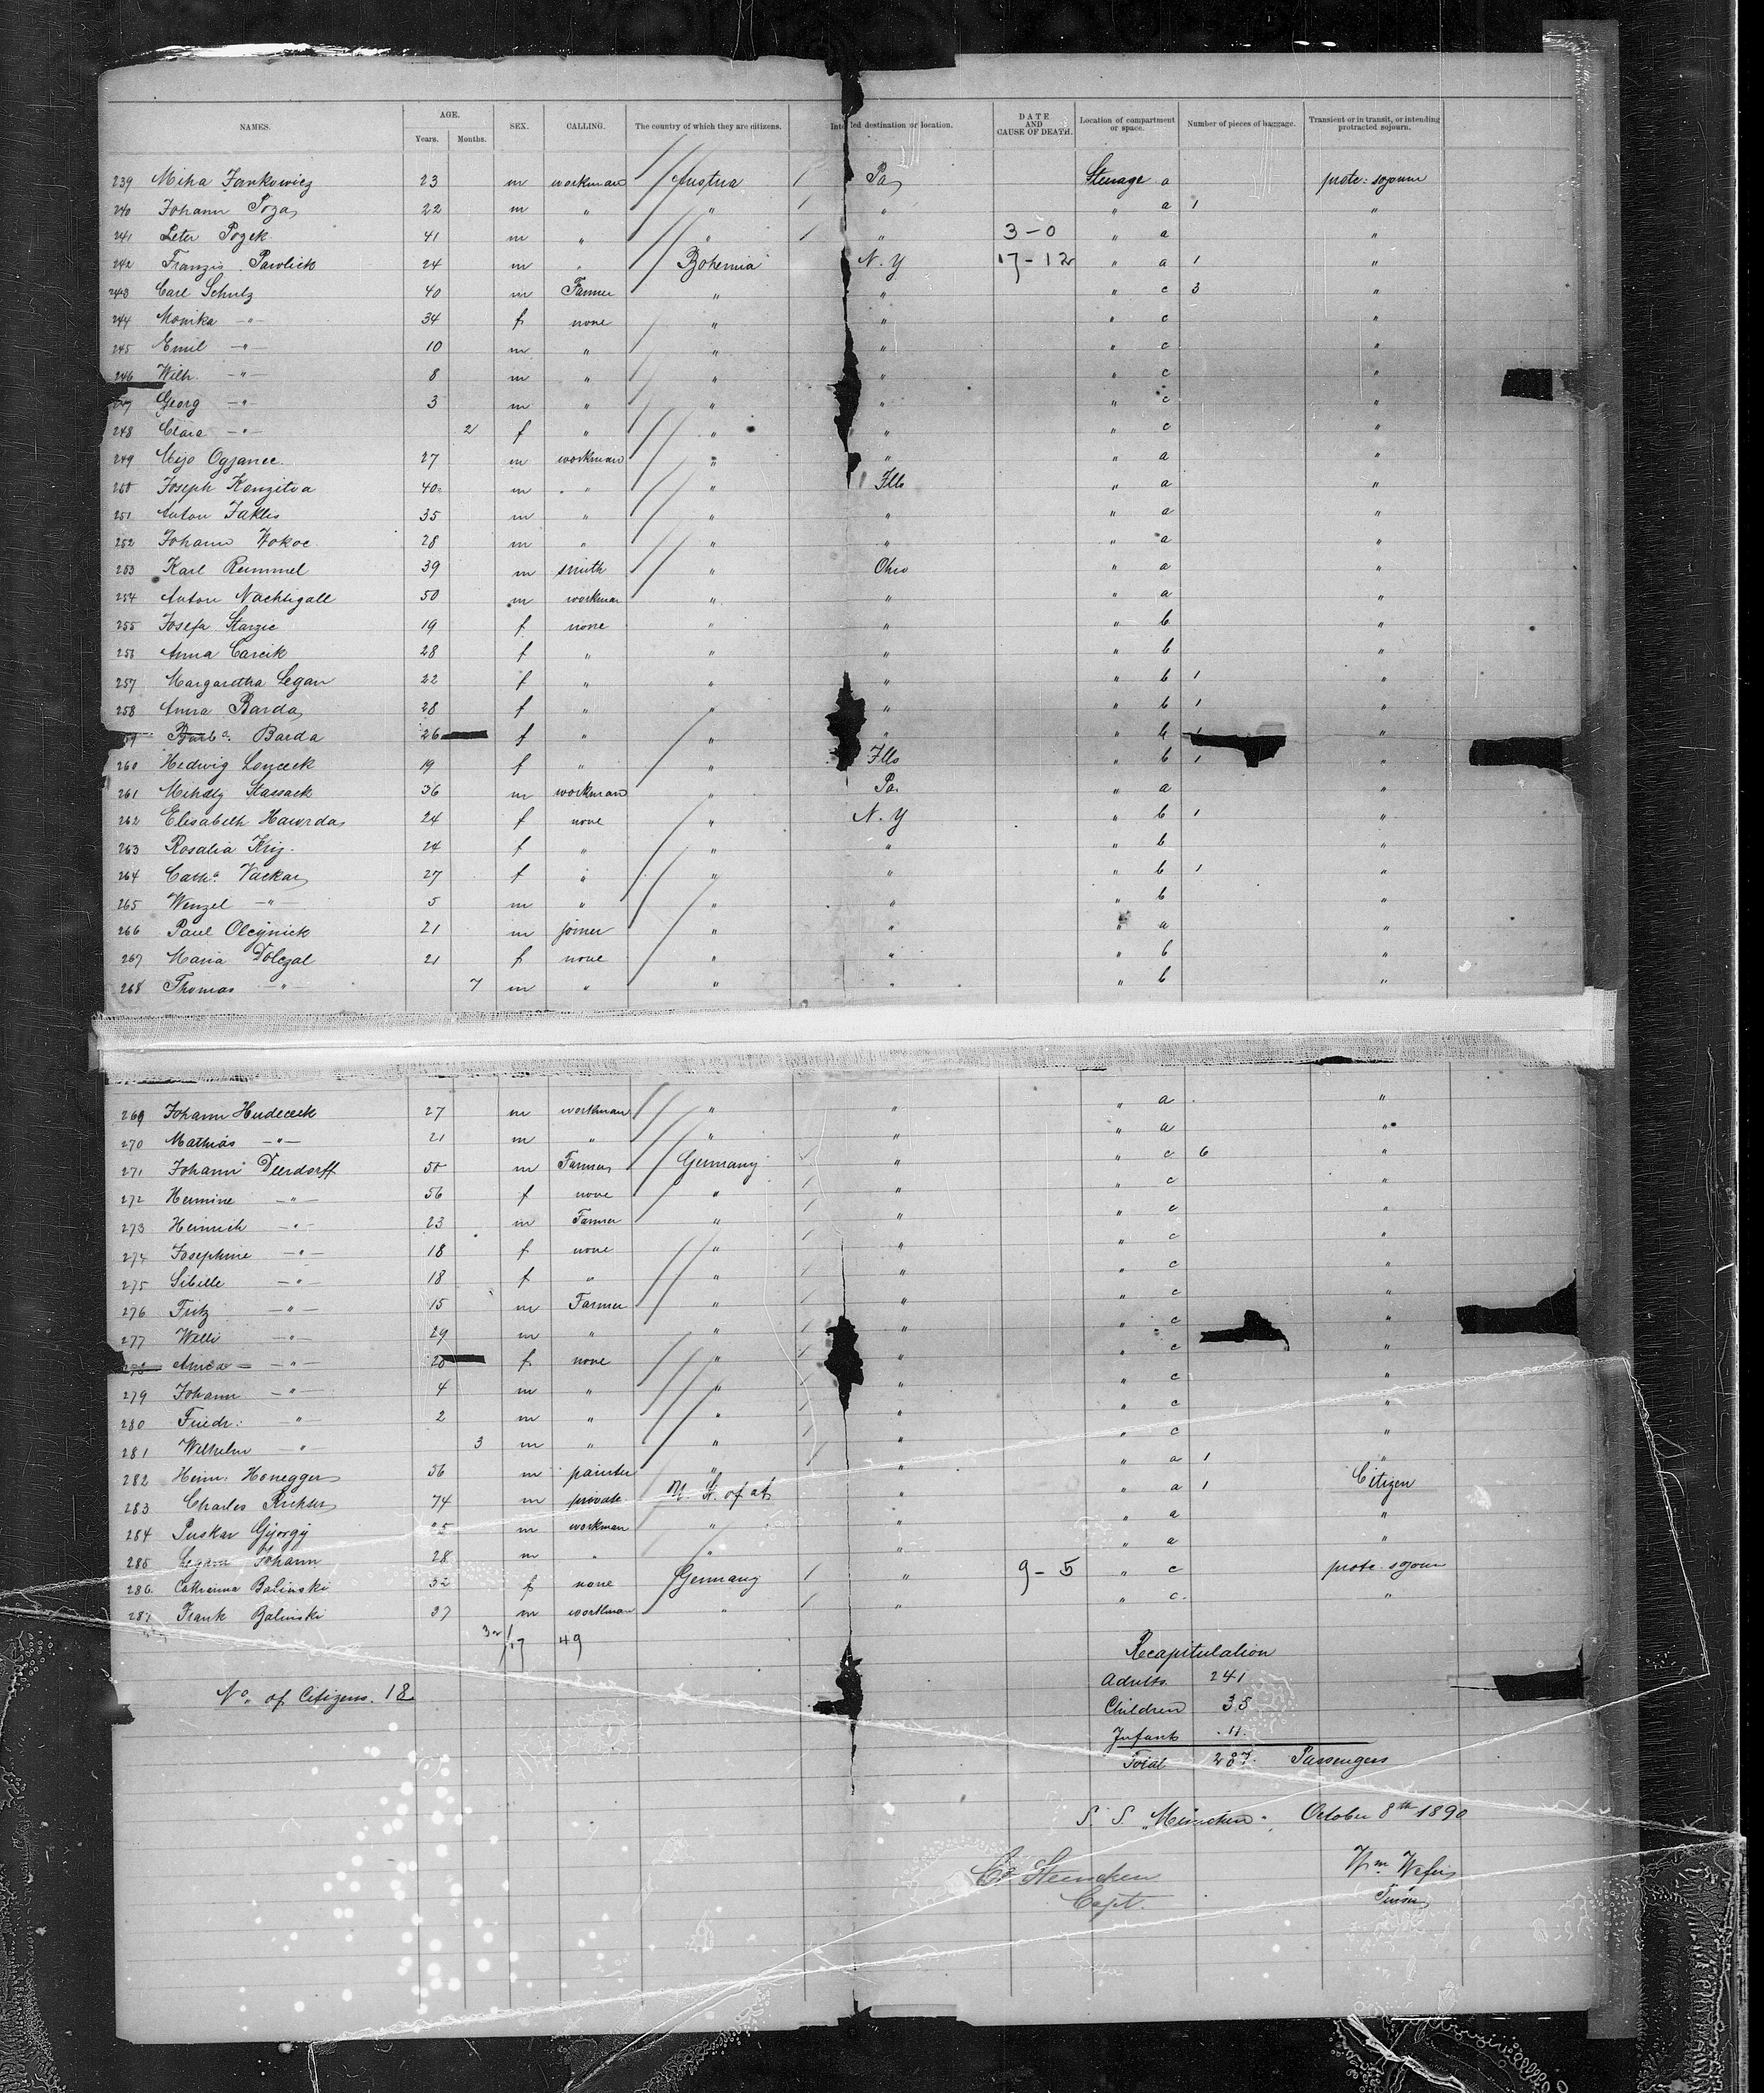 NAMES. AGE. SEX. CALLING. The country of which they are citizens. Intended destination or location. DATE AND CAUSE OF DEATH. Location of compartment or space. Number of pieces of baggage. Transient or in transit, or intending protracted sojourn.
Years. Months.
239 Miha Jankowicz 23 m workman Austria Pa Steerage a protr: sojourn
240 Johann Poza 22 m " " " " a 1 "
241 Peter Pozek 41 m " " " 3-0 " a "
242 Franzis Pawlick 24 m " Bohemia N.Y 17-12 " a 1 "
243 Carl Schulz 40 m Farmer " " " c 3 "
244 Monika -"- 34 f none " " " c "
245 Emil -"- 10 m " " " " c "
246 Wilh. -"- 8 m " " " " c "
Georg -"- 3 m " " " c "
248 Clara -"- 2 f " " " " c "
249 Mijo Ogjanec 27 m workman " " " a "
250 Joseph Konzitva 40 m " " Ills " a "
251 Anton Jaklis 35 m " " " " a "
252 Johann Wokoc 28 m " " " " a "
253 Karl Reimmel 39 m smith " Ohio " a "
254 Anton Nachtigall 50 m workman " " " a "
255 Josefa Starzic 19 f none " " " b "
256 Anna Carcik 28 f " " " " b "
257 Margaretha Legan 22 f " " " " b 1 "
258 Anna Barda 28 f " " " " b 1 "
Barba. Barda 26 f " " " " b 1 "
260 Hedwig Lonzcek 19 f " " Ills " b 1 "
261 Mihaly Stassack 36 m workman " Pa. " a "
262 Elisabeth Hawrda 24 f none " N.Y " b 1 "
263 Rosalia Kriz 24 f " " " " b
264 Catha. Vackar 27 f " " " " b 1 "
265 Wenzel -"- 5 m " " " " b "
266 Paul Olejnick 21 m joiner " " " a "
267 Maria Dolezal 21 f none " " " b "
268 Thomas -"- 7 m " " " " b "
269 Johann Hudecek 27 m workman " " " a "
270 Mathias -"- 21 m " " " " a "
271 Johann Deerdorff 50 m Farmer Germany " " c 6 "
272 Hermine -"- 56 f none " " " c "
273 Heinrich -"- 23 m Farmer " " " c "
274 Josephine -"- 18 f none " " " c "
275 Sibelle -"- 18 f " " " " c "
276 Fritz -"- 15 m Farmer " " " c "
277 Willi -"- 29 m " " " " c "
278 Anica -"- 20 f none " " " c "
279 Johann -"- 4 m " " " " c "
280 Friedr: -"- 2 m " " " " c "
281 Wilhelm -"- 3 m " " " " c "
282 Heinr: Honegger 56 m painter " " " a 1 "
283 Charles Richter 74 m private U. St. of a " " a 1 Citizen
284 Puskar György 25 m workman " " " a "
285 Legan Johann 28 m " " " " a "
286. Catharina Balinski 32 f none Germany " 9-5 " c protr. sojour
287 Frank Balinski 37 m workman " " " c. "
17 49
Recapitulation
Adults. 241
No. of Citizens. 18
Children 35
Infants .11.
Total 287. Passengers
S. S. "München". October 8th 1890
Capt.